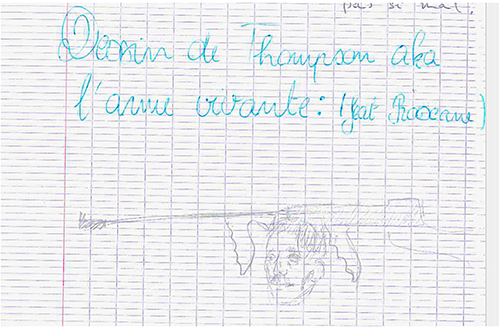 pas si mal.
Dessin de Thompson aka
l'arme vivante : (feat